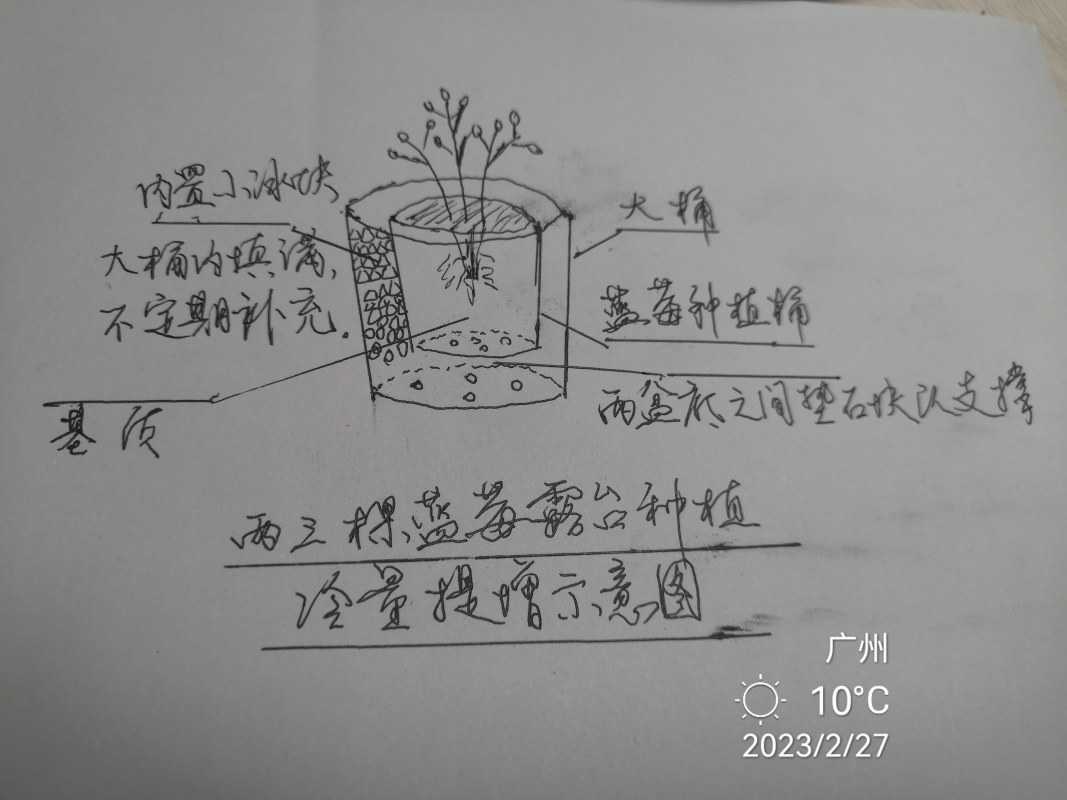 内置小冰块,
大桶内填满,
不定期补充.
大桶
蓝莓种植桶
两盆底之间垫石块以支撑
基质
两三棵蓝莓露台种植
冷量提增示意图
广州
10°C
2023/2/27